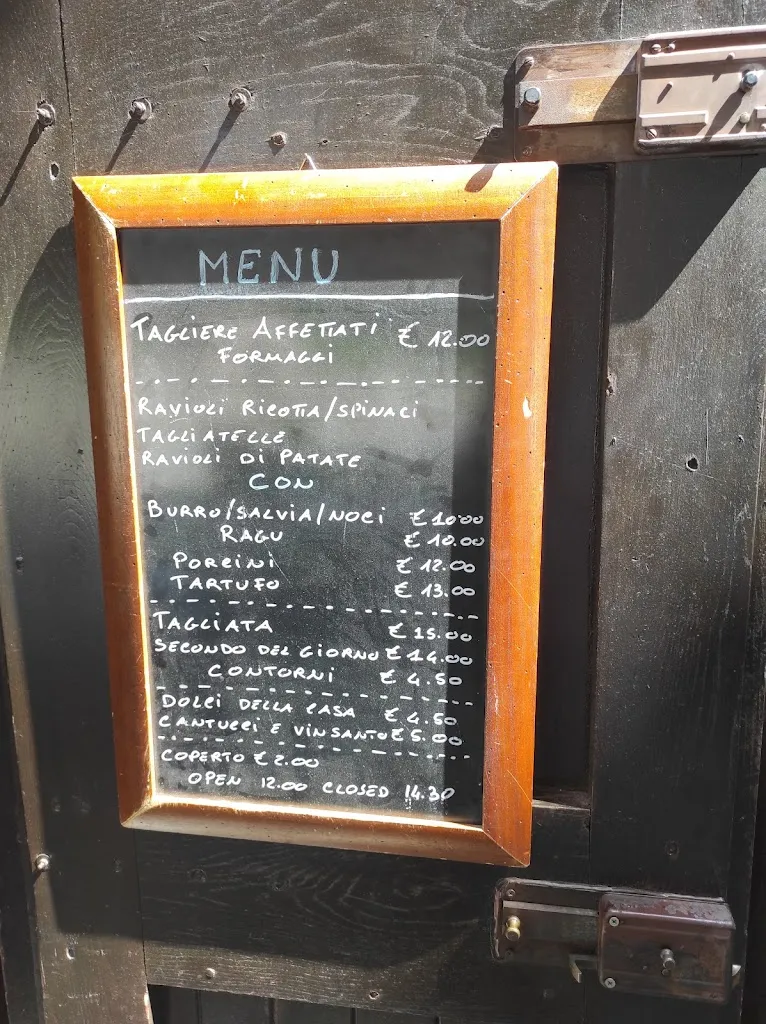 MENU
TAGLIERE AFFETTATI € 12.00
FORMAGGI
RAVIOLI RICOTTA/SPINACI
TAGLIATELLE
RAVIOLI DI PATATE
CON
BURRO/SALVIA/NOCI € 10.00
RAGU € 10.00
PORCINI € 12.00
TARTUFO € 13.00
TAGLIATA € 15.00
SECONDO DEL GIORNO € 14.00
CONTORNI € 4.50
DOLCI DELLA CASA € 4.50
CANTUCCI E VINSANTO € 5.00
COPERTO € 2.00
OPEN 12.00 CLOSED 14.30